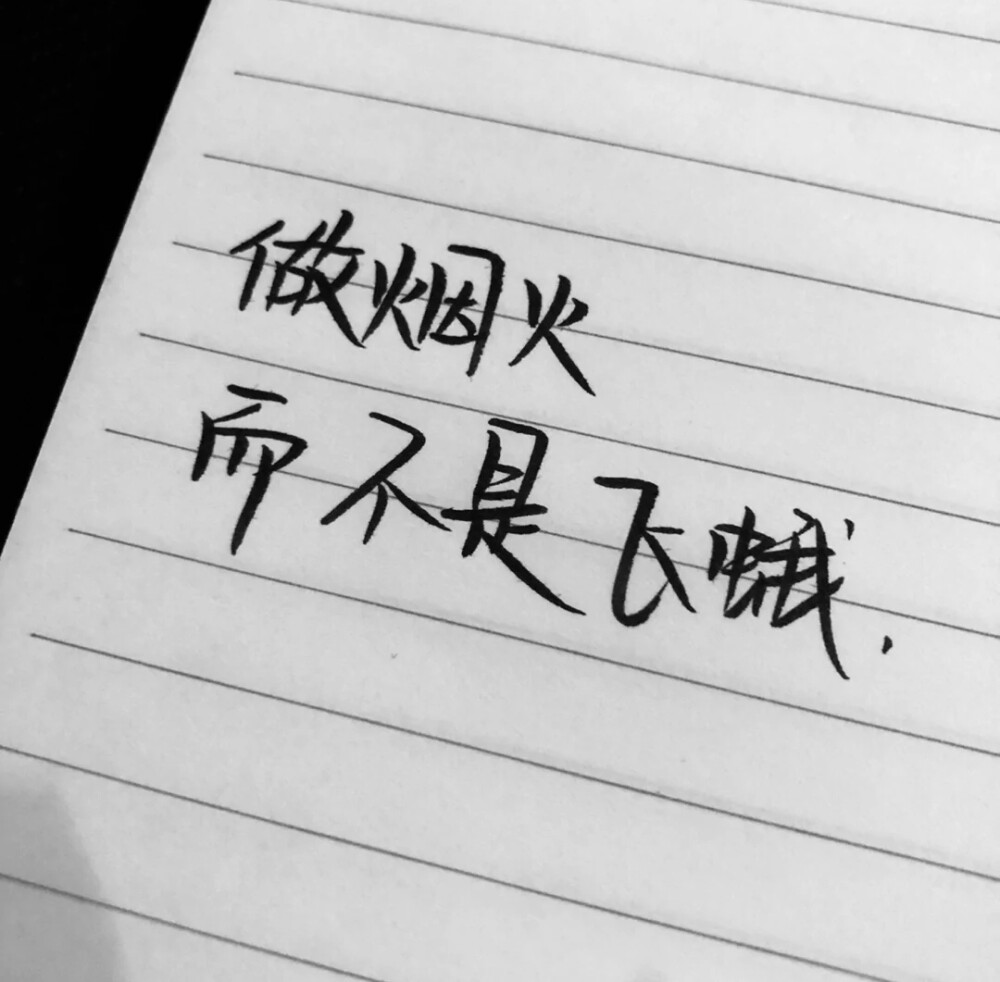 做烟火
而不是飞蛾.